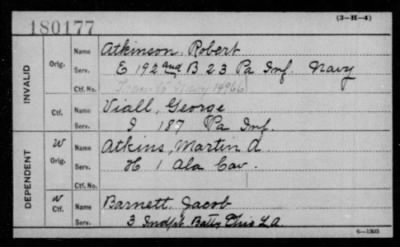 (3-H-4)
180177
INVALID
Orig.
Name Atkinson, Robert
Serv. E 192nd B 23 Pa Inf. Navy
Ctf. No. Navy 14966
Ctf.
Name Viall, George
Serv. I 187 Pa Inf.
DEPENDENT
W
Orig.
Name Atkins, Martin A.
Serv. H 1 Ala Cav.
Ctf. No.
W
Ctf.
Name Barnett, Jacob
Serv. 3 Indpt. Batty Ohio L.A.